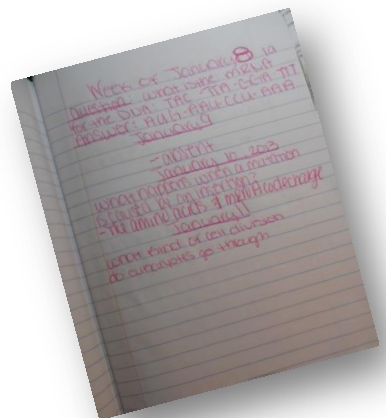 Week of January 8
Question: what is the mRNA
for the DNA: TAC-TTA-GGA-TTT
Answer: AUG-AAU-CCU-AAA
January 9
-absent
January 10, 2013
what happens when a mutation
is caused by an insertion?
-the amino acids & mRNA code change
January 11
what kind of cell division
do eukaryotes go through